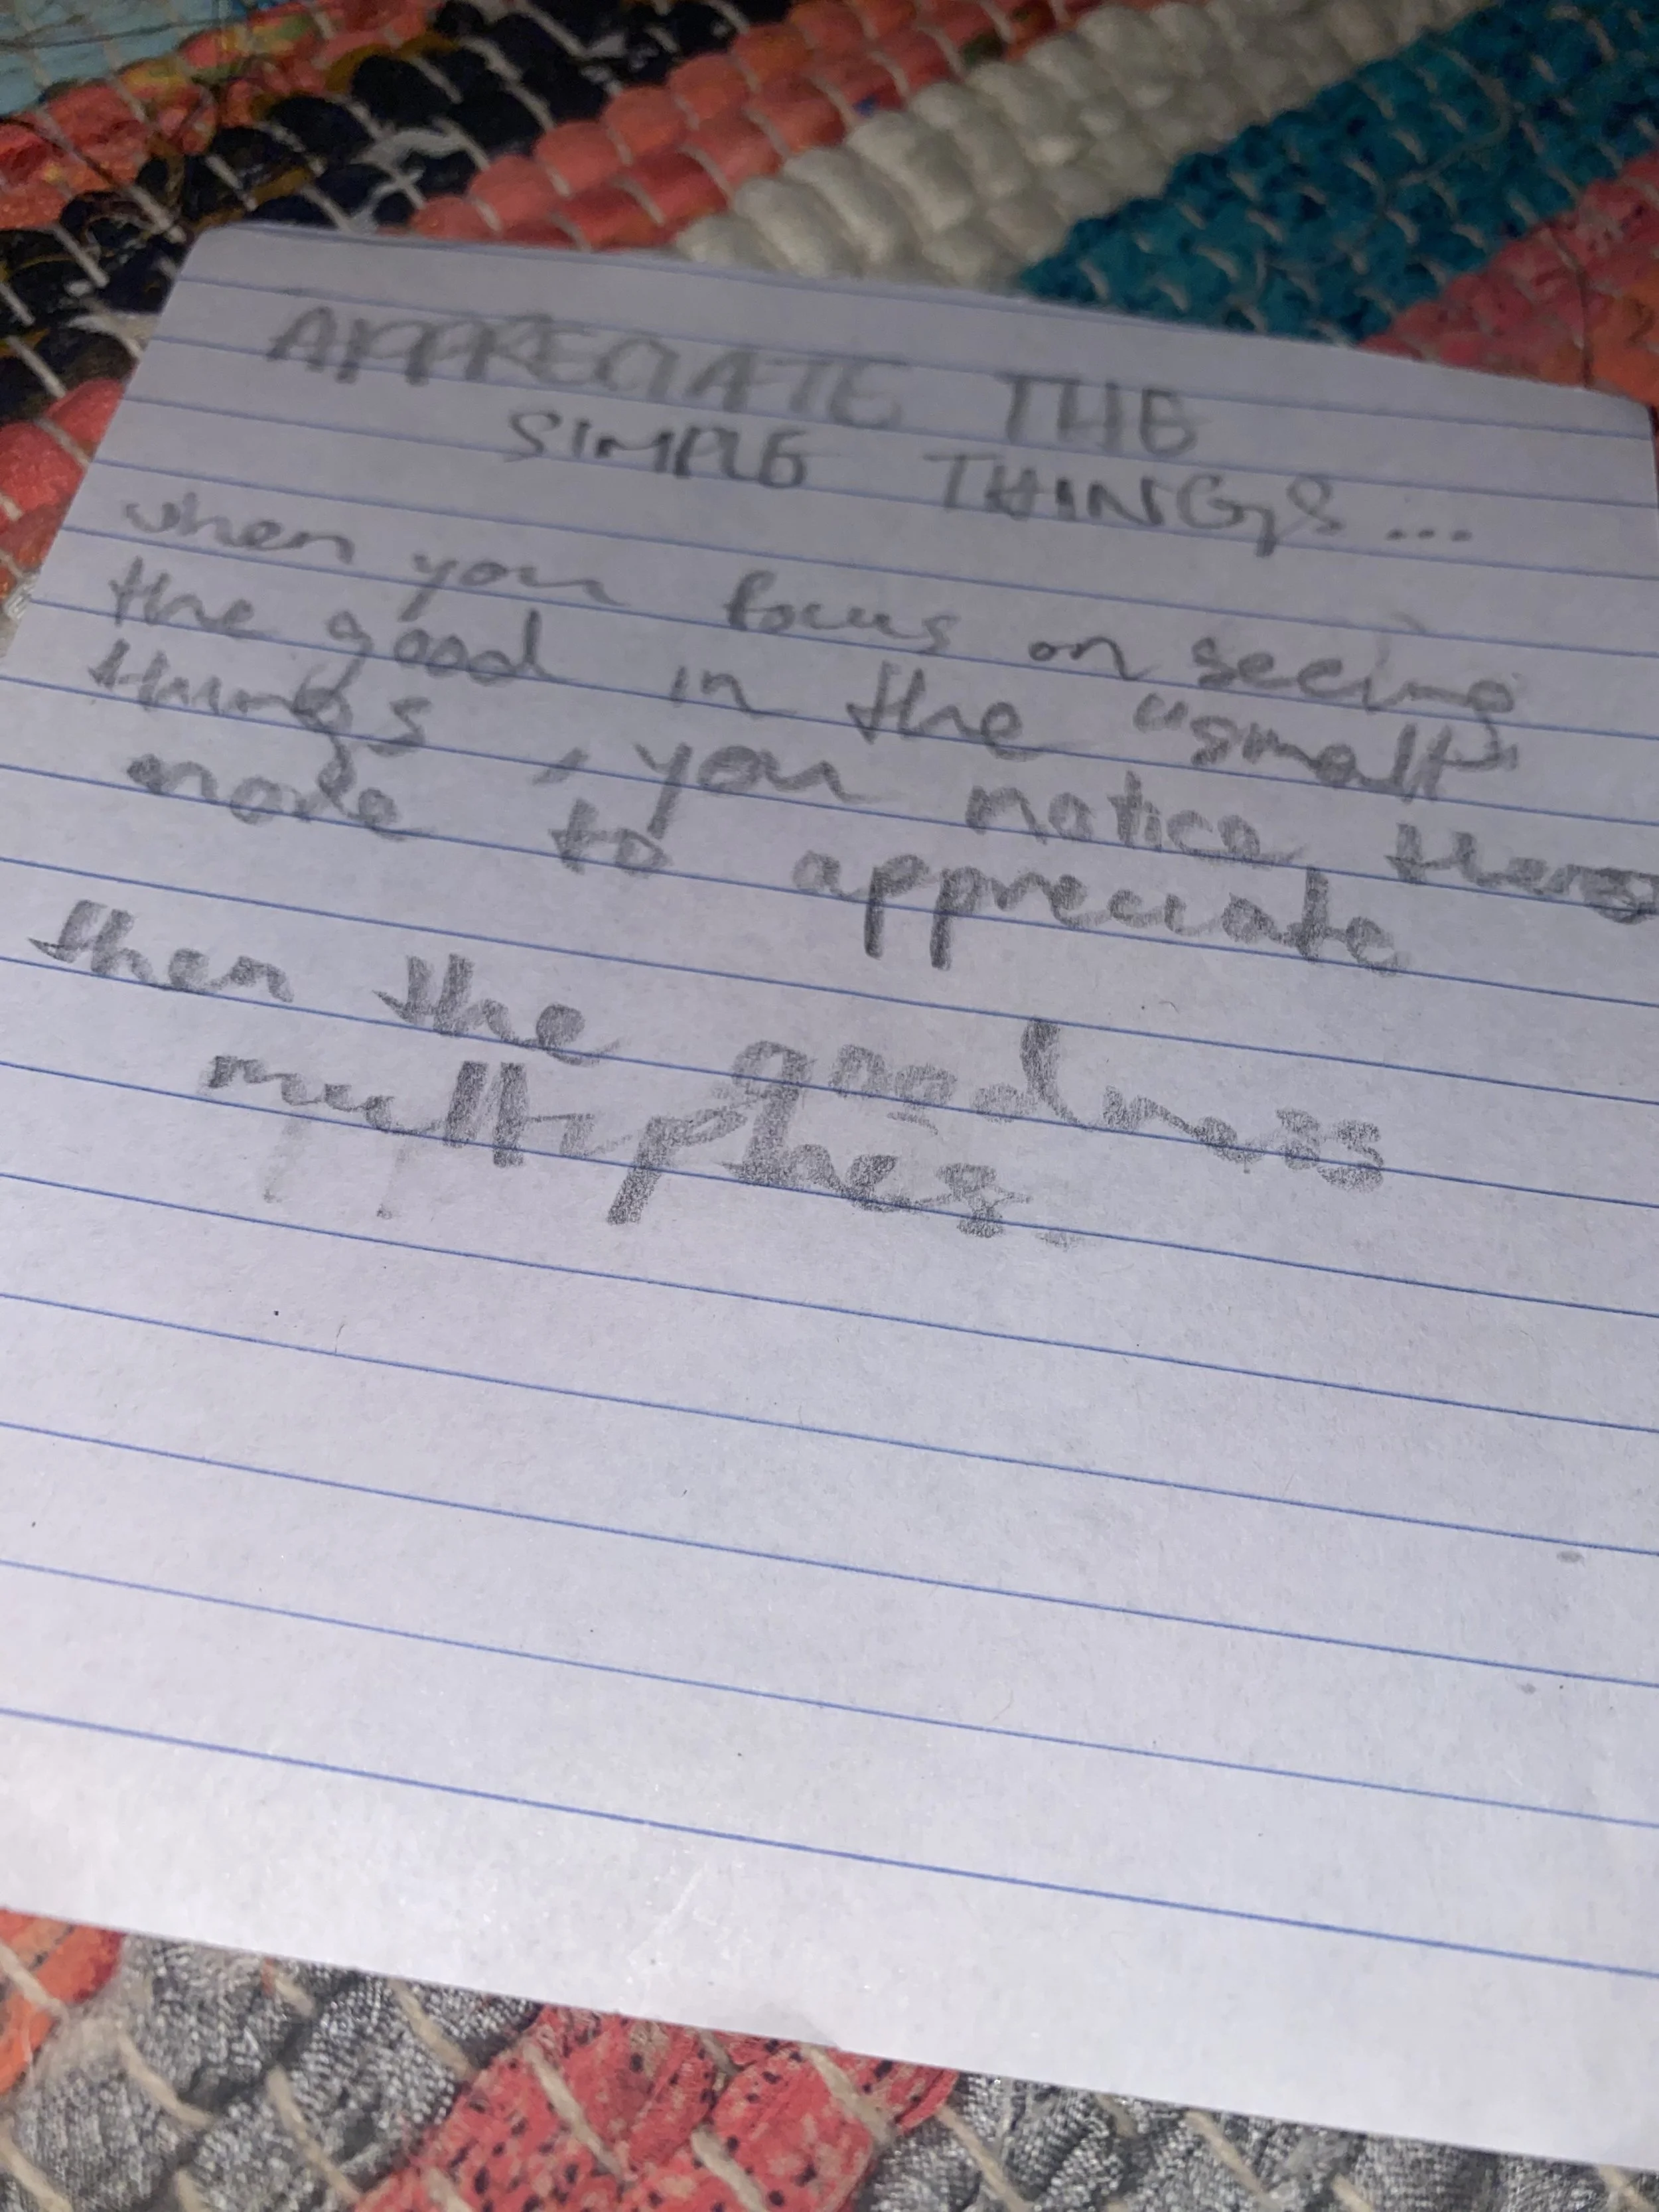 APPRECIATE THE
SIMPLE THINGS...
when you focus on seeing
the good in the "small"
things, you notice theres
more to appreciate
then the goodness
multiplies.